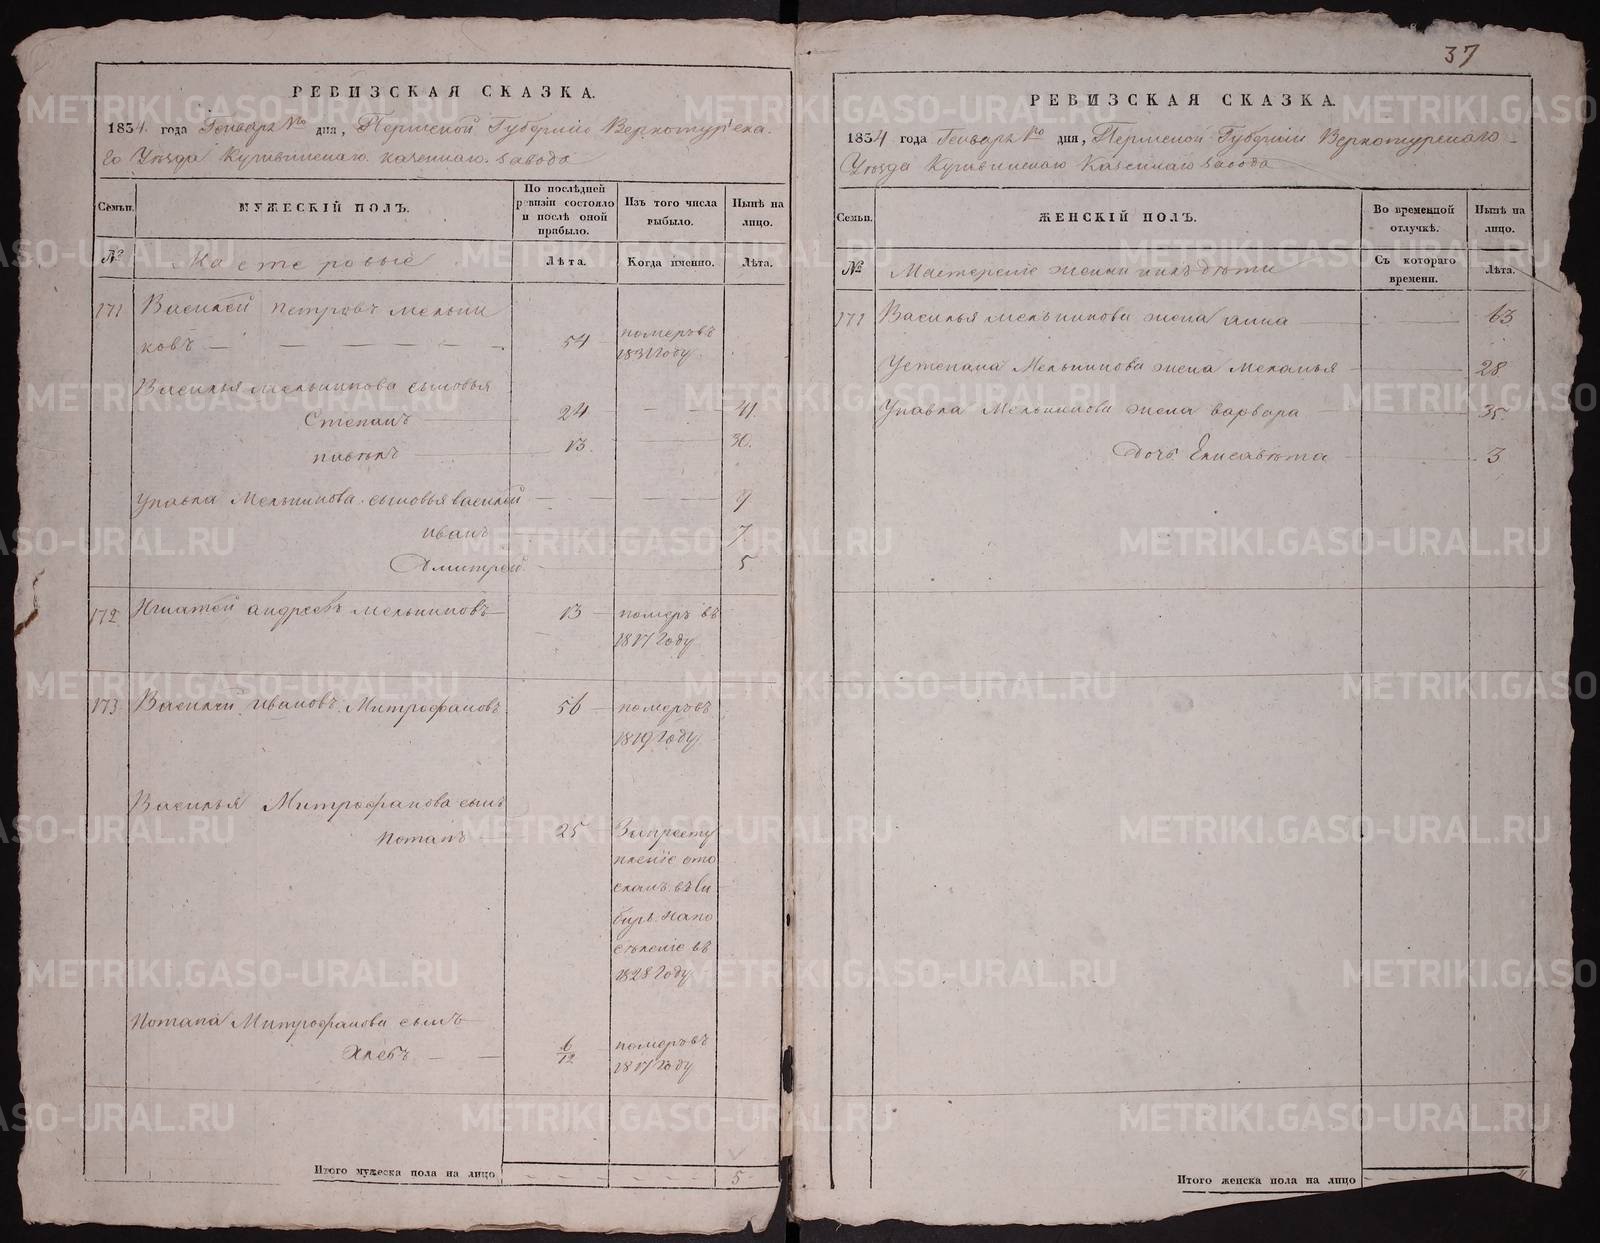 37
РЕВИЗСКАЯ СКАЗКА.
1834 года Генваря дня, Пермской Губернiи Верхотурска-
го Уѣзда Кушвинскаго казеннаго завода
Семьи.
МУЖЕСКIЙ ПОЛЪ.
По послѣдней ревизiи состояло и послѣ оной прибыло.
Изъ того числа выбыло.
Нынѣ на лицо.
№
Мастеровые
Лѣта.
Когда именно.
Лѣта.
171 Василей Петровъ Мельни
ковъ 54 померъ въ
1831 Году
Василья Мельникова сыновья
Степанъ 24 41.
Павелъ 13. 30.
У Павла Мельникова сыновья Василей 9
Иванъ 7
Дмитрей 5
172 Игнатей Андреевъ Мельниковъ 13 померъ въ
1817 Году
173 Василей Ивановъ Митрофановъ 56 померъ въ
1819 Году
Василья Митрофанова сынъ
Потапъ 25 За престу
пленiе ото
сланъ въ Си
бирь на по
селенiе въ
1828 Году
Потапа Митрофанова сынъ
Хлебъ 6/12 померъ въ
1817 Году
Итого мужеска пола на лицо 5
РЕВИЗСКАЯ СКАЗКА.
1834 года Генваря дня, Пермской Губернiи Верхотурскаго
Уѣзда Кушвинскаго Казеннаго завода
Семьи.
ЖЕНСКIЙ ПОЛЪ.
Во временной отлучкѣ.
Нынѣ на лицо.
№
Мастерскiе женки и ихъ дѣти
Съ котораго времени.
Лѣта.
171 Василья Мельникова жена Анна 63
У Степана Мельникова жена Меланья 28
У Павла Мельникова жена Варвара 35
Дочь Елисавѣта 3
Итого женска пола на лицо 4
METRIKI.GASO-URAL.RU